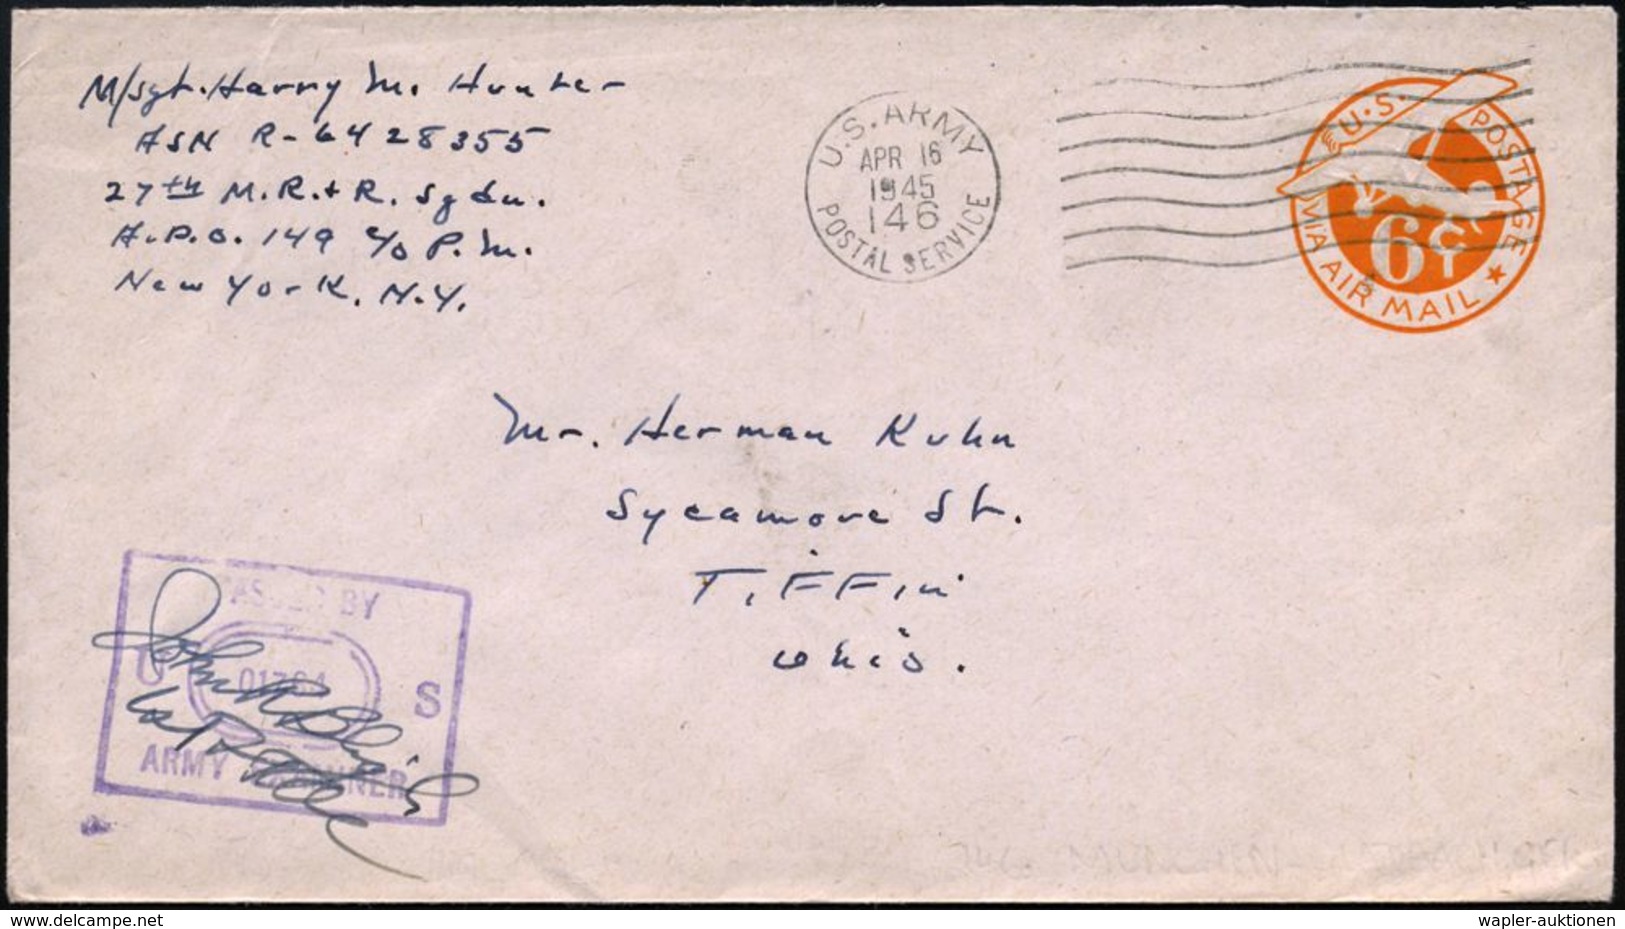 M/sgt. Harry M. Hunter
ASN R-6428355
27th M.R.+R. Sqdn.
A.P.O. 149 c/o P.M.
New York, N.Y.
U.S. ARMY
APR 16
1945
146
POSTAL SERVICE
U.S. POSTAGE
6¢
VIA AIR MAIL
Mr. Herman Kuhn
Sycamore St.
Tiffin
Ohio.
PASSED BY
U S
ARMY EXAMINER
www.delcampe.net
wapler-auktionen